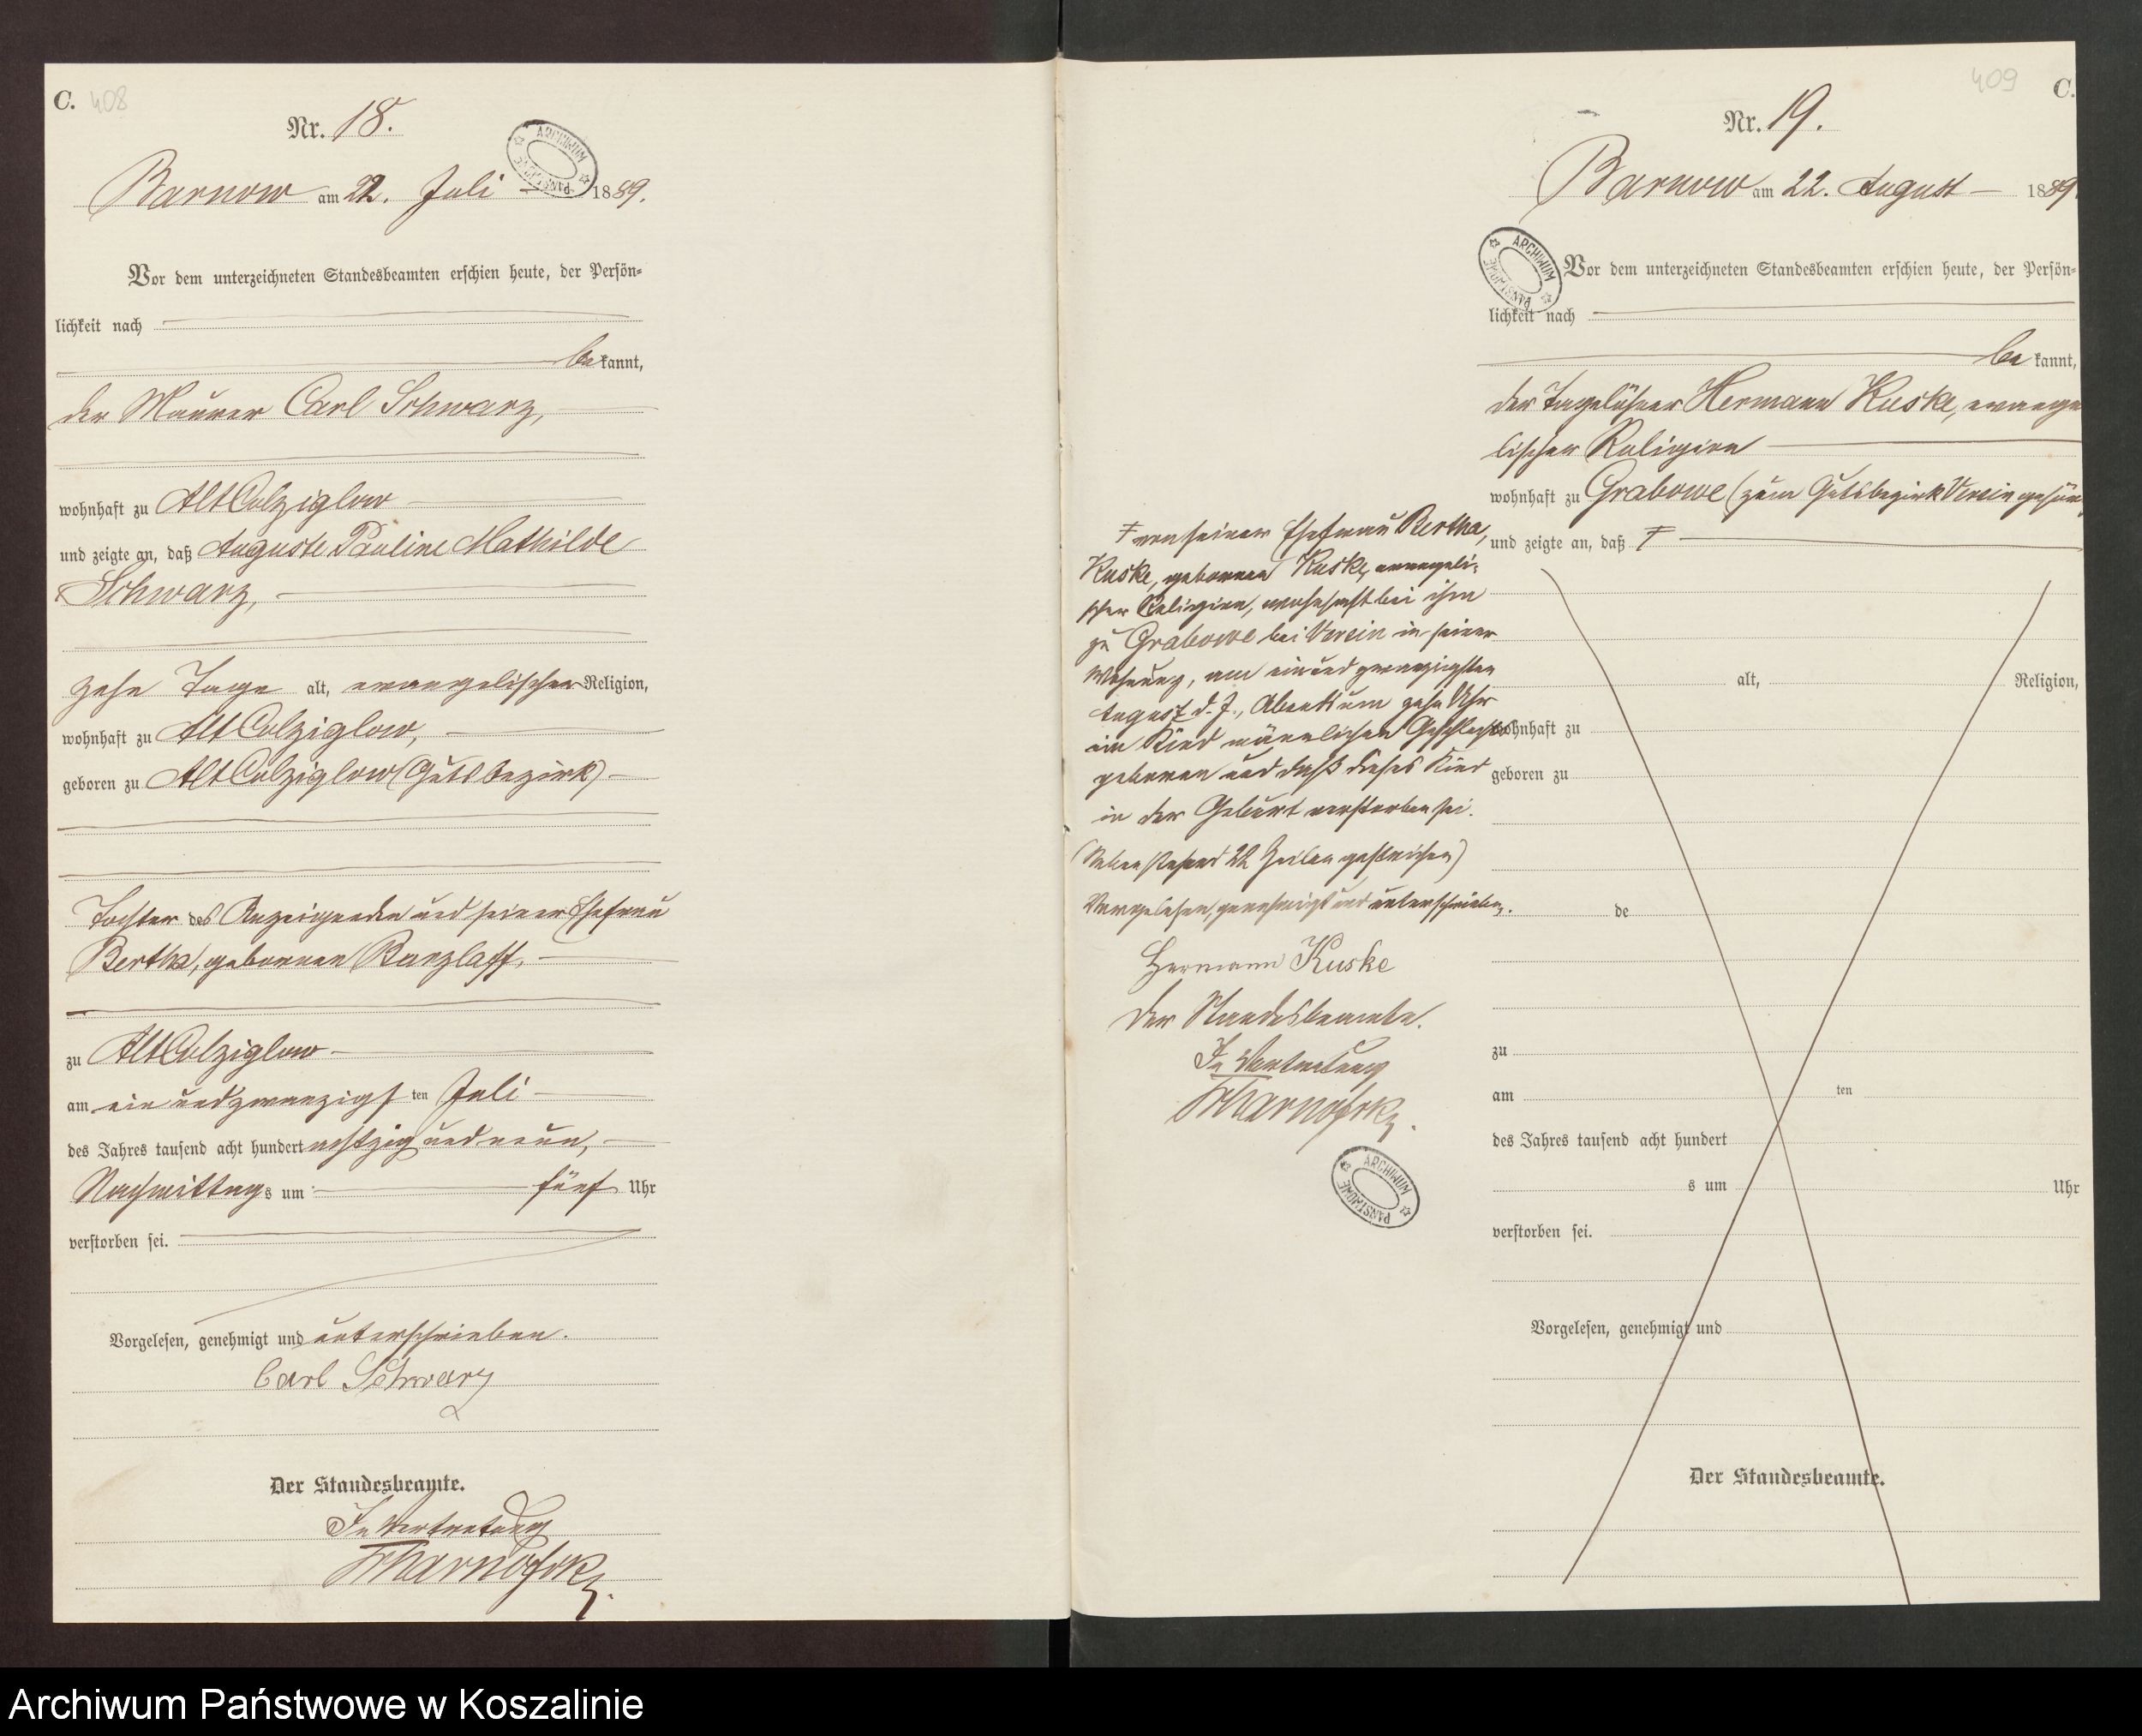 C. 408
Nr. 18.
ARCHIWUM PAŃSTWOWE
Barnow am 22. Juli 1889.
Vor dem unterzeichneten Standesbeamten erschien heute, der Persön-
lichkeit nach
be kannt,
der Maurer Carl Schwarz,
wohnhaft zu Alt Colziglow
und zeigte an, daß Auguste Pauline Mathilde
Schwarz,
zehn Tage alt, evangelischer Religion,
wohnhaft zu Alt Colziglow,
geboren zu Alt Colziglow (Gutsbezirk)
Tochter des Anzeigenden und seiner Ehefrau
Bertha, geborenen Banzlaff,
zu Alt Colziglow
am ein und zwanzigsten Juli
des Jahres tausend acht hundert achtzig und neun,
Nachmittags um fünf Uhr
verstorben sei.
Vorgelesen, genehmigt und unterschrieben.
Carl Schwarz
Der Standesbeamte.
In Vertretung
409 C.
Nr. 19.
Barnow am 22. August 1889
ARCHIWUM PAŃSTWOWE
Vor dem unterzeichneten Standesbeamten erschien heute, der Persön-
lichkeit nach
be kannt,
der Tagelöhner Hermann Kuske, evange
lischer Religion
wohnhaft zu Grabowe (zum Gutsbezirk Versin gehör.
und zeigte an, daß ⊤
⊤ von seiner Ehefrau Bertha,
Kuske, geborenen Kuske, evangeli-
scher Religion, wohnhaft bei ihm
zu Grabowe bei Versin in seiner
Wohnung, am ein und zwanzigsten
August d. J., Abends um zehn Uhr
ein Kind männlichen Geschlechts
geboren und daß dieses Kind
in der Geburt verstorben sei.
(Nebenstehend 22 Zeilen gestrichen)
Vorgelesen, genehmigt und unterschrieben.
Hermann Kuske
Der Standesbeamte.
In Vertretung
ARCHIWUM PAŃSTWOWE
alt, Religion,
wohnhaft zu
geboren zu
de
zu
am ten
des Jahres tausend acht hundert
s um Uhr
verstorben sei.
Vorgelesen, genehmigt und
Der Standesbeamte.
Archiwum Państwowe w Koszalinie